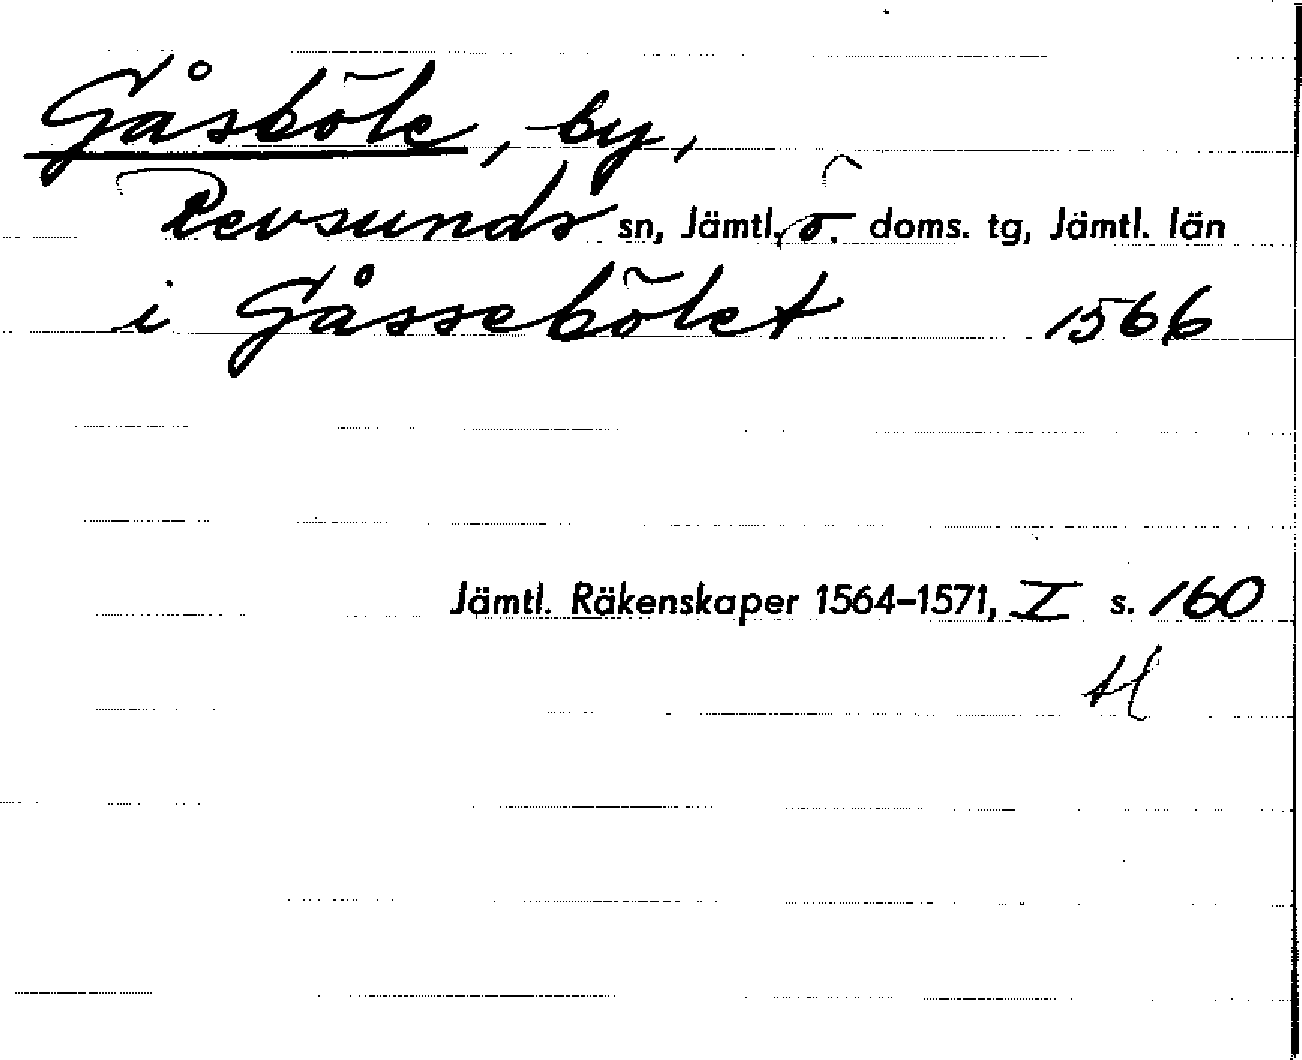 Gåsböle, by,
Revsunds sn, Jämtl. ö. doms. tg, Jämtl. län
i Gåssebölet 1566
Jämtl. Räkenskaper 1564-1571, I s. 160
H